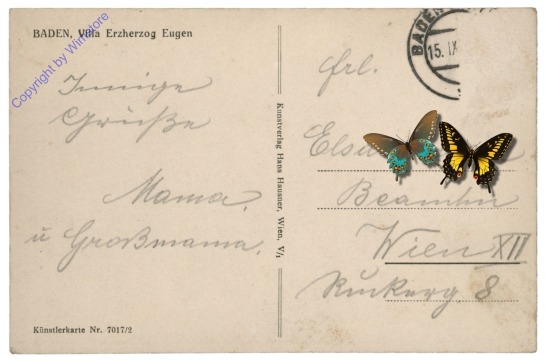 BADEN, Villa Erzherzog Eugen
Copyright by Wirnstore
Innige
Grüße
Mama
u Großmama.
Künstlerkarte Nr. 7017/2
Kunstverlag Hans Hausner, Wien, V/1
BADEN
15. IX
Frl.
Beamtin
Wien XII
8